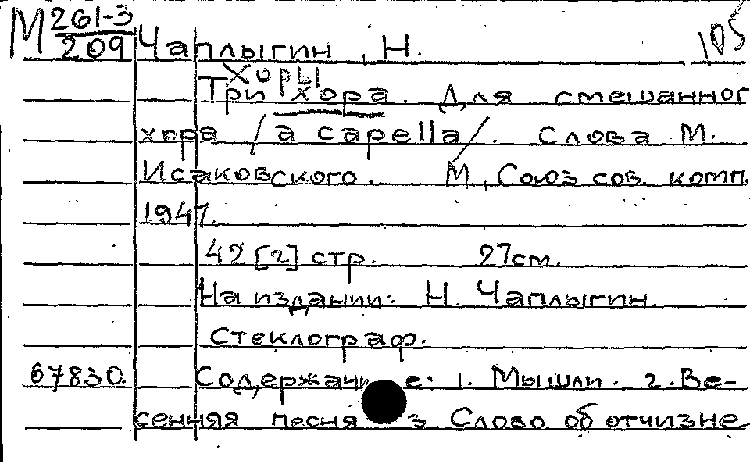 М 261-3 105
209 Чаплыгин, Н.
Хоры
Три хора. Для смешанног
хора /a capella/. Слова М.
Исаковского. М., Союз сов. комп.
1947.
42 [2] стр. 27см.
На издании: Н. Чаплыгин.
Стеклограф.
67830. Содержание: 1. Мышли. 2. Ве-
сенняя песня 3 Слово об отчизне